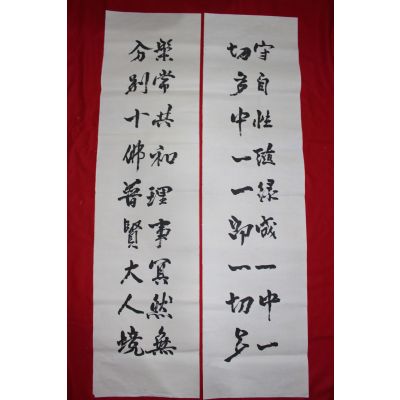 守自性隨緣成一中一
切多中一一即一切多
槃常共和理事冥然無
分別十佛普賢大人境